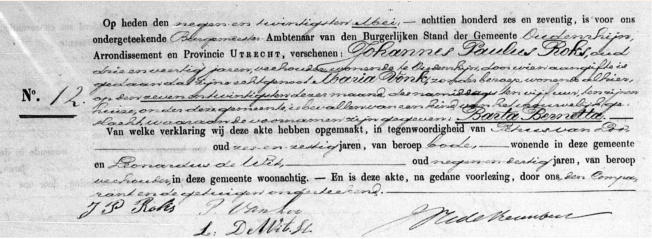 Op heden den negen en twintigsten Mei, — achttien honderd zes en zeventig, is voor ons
ondergeteekende Burgemeester Ambtenaar van den Burgerlijken Stand der Gemeente Oudenrijn,
Arrondissement en Provincie UTRECHT, verschenen: Johannes Paulus Roks, oud
drie en veertig jaren, veehouder wonende te Oudenrijn, door wien aangifte is
gedaan dat zijne echtgenoot Maria Vonk, zonder beroep, wonende alhier,
No. 12. op den zeven en twintigsten dezer maand des namiddags ten vijf ure, ten zijnen
huize, onder deze gemeente is bevallen van een kind van het vrouwelijk ge-
slacht, waaraan de voornamen zijn gegeven: Barta Bernetta. —
Van welke verklaring wij deze akte hebben opgemaakt, in tegenwoordigheid van van
oud zes en zestig jaren, van beroep bode, — wonende in deze gemeente
en Leonardus de Wit, oud negen en dertig jaren, van beroep
veehouder, in deze gemeente woonachtig. — En is deze akte, na gedane voorlezing, door ons, den Compa-
rant en de getuigen onderteekend.
J P Roks
L: D Wit